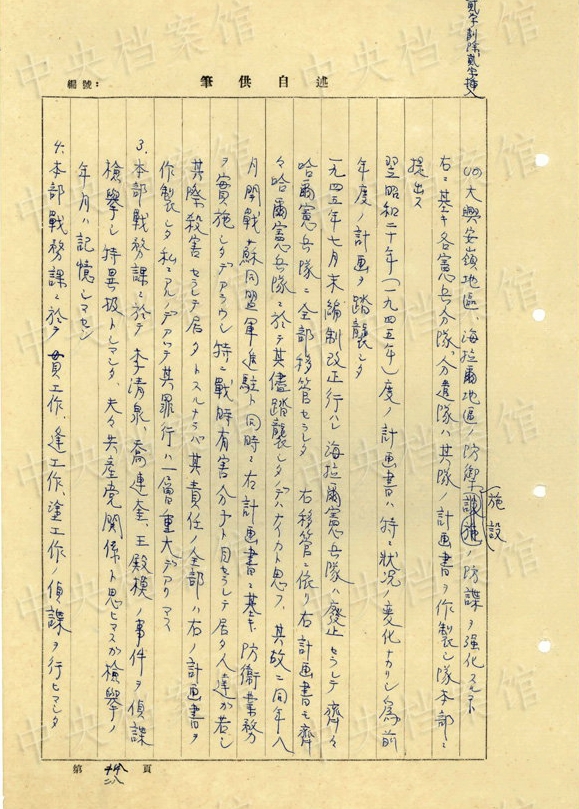 貳字削除、貳字挿入
編號：
筆供自述
(リ)大興安嶺地區、海拉爾地區ノ防禦施設ノ防諜ヲ強化スルコト
右ニ基キ各憲兵分隊、分遣隊ハ其隊ノ計画書ヲ作製シ隊本部ニ
提出ス
翌昭和二十年(一九四五年)度ノ計画書ハ特ニ狀況ノ変化ナカリシ為前
年度ノ計画ヲ踏襲シタ
一九四五年七月末編制改正行ハレ海拉爾憲兵隊ハ廢止セラレテ齊々
哈爾憲兵隊ニ全部移管セラレタ 右移管ニ依リ右計画書モ齊
々哈爾憲兵隊ニ於テ其儘踏襲シタノデハナイカト思フ、其故ニ同年八
月開戰、蘇同盟軍進駐ト同時ニ右計画書ニ基キ防衛業務
ヲ實施シタデアラウシ特ニ戰時有害分子ト目セラレテ居タ人達ガ若シ
其際殺害セラレテ居タトスルナラバ其責任ノ全部ハ右ノ計画書ヲ
作製シタ私ニアルノデアツテ其罪行ハ一層重大デアリマス
3、本部戰務課ニ於テ李清泉、喬連金、王殿模ノ事件ヲ偵諜
檢擧シ特異扱トシマシタ、夫々共産党関係ト思ヒマスガ檢擧ノ
年月ハ記憶シマセン
4、本部戰務課ニ於テ 工作、逢工作、塗工作ノ偵諜ヲ行ヒマシタ
第 二八 頁
中央档案馆